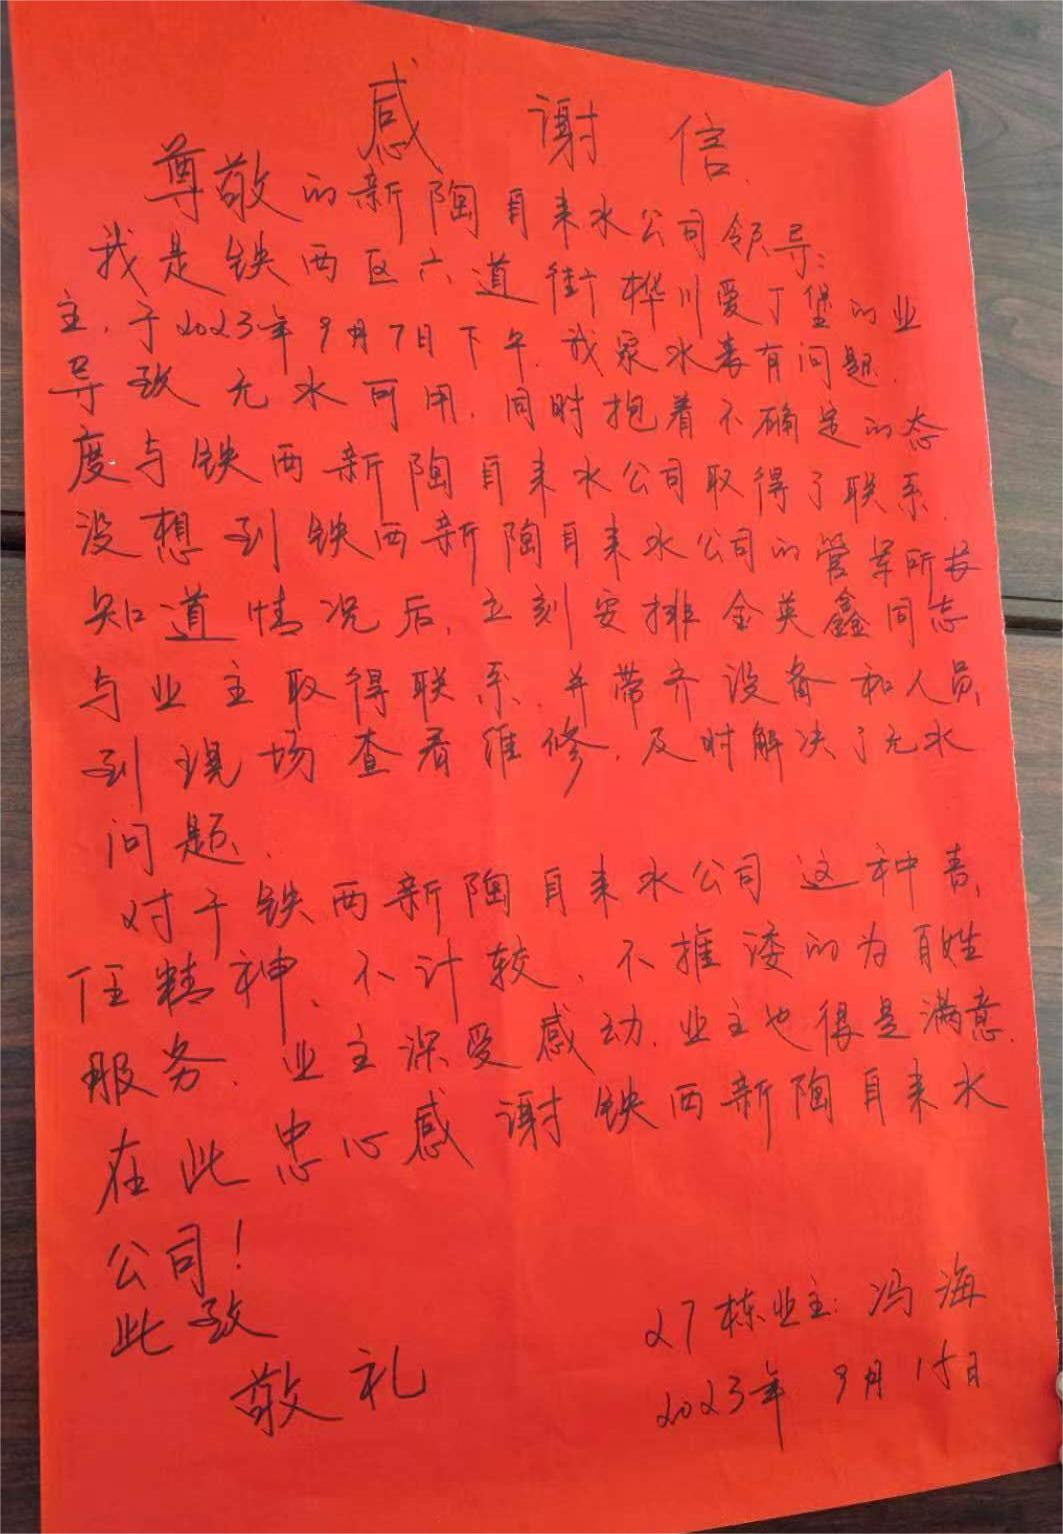 感谢信
尊敬的新陶自来水公司领导:
我是铁西区六道街桦川爱丁堡的业
主,于2023年9月7日下午,我家水表有问题,
导致无水可用,同时抱着不确定的态
度与铁西新陶自来水公司取得了联系.
没想到铁西新陶自来水公司的管军所长
知道情况后,立刻安排金英鑫同志
与业主取得联系,并带齐设备和人员,
到现场查看维修,及时解决了无水
问题.
对于铁西新陶自来水公司这种责
任精神、不计较、不推诿的为百姓
服务.业主深受感动.业主也很是满意.
在此忠心感谢铁西新陶自来水
公司!
此致
敬礼
27栋业主:冯海
2023年9月15日